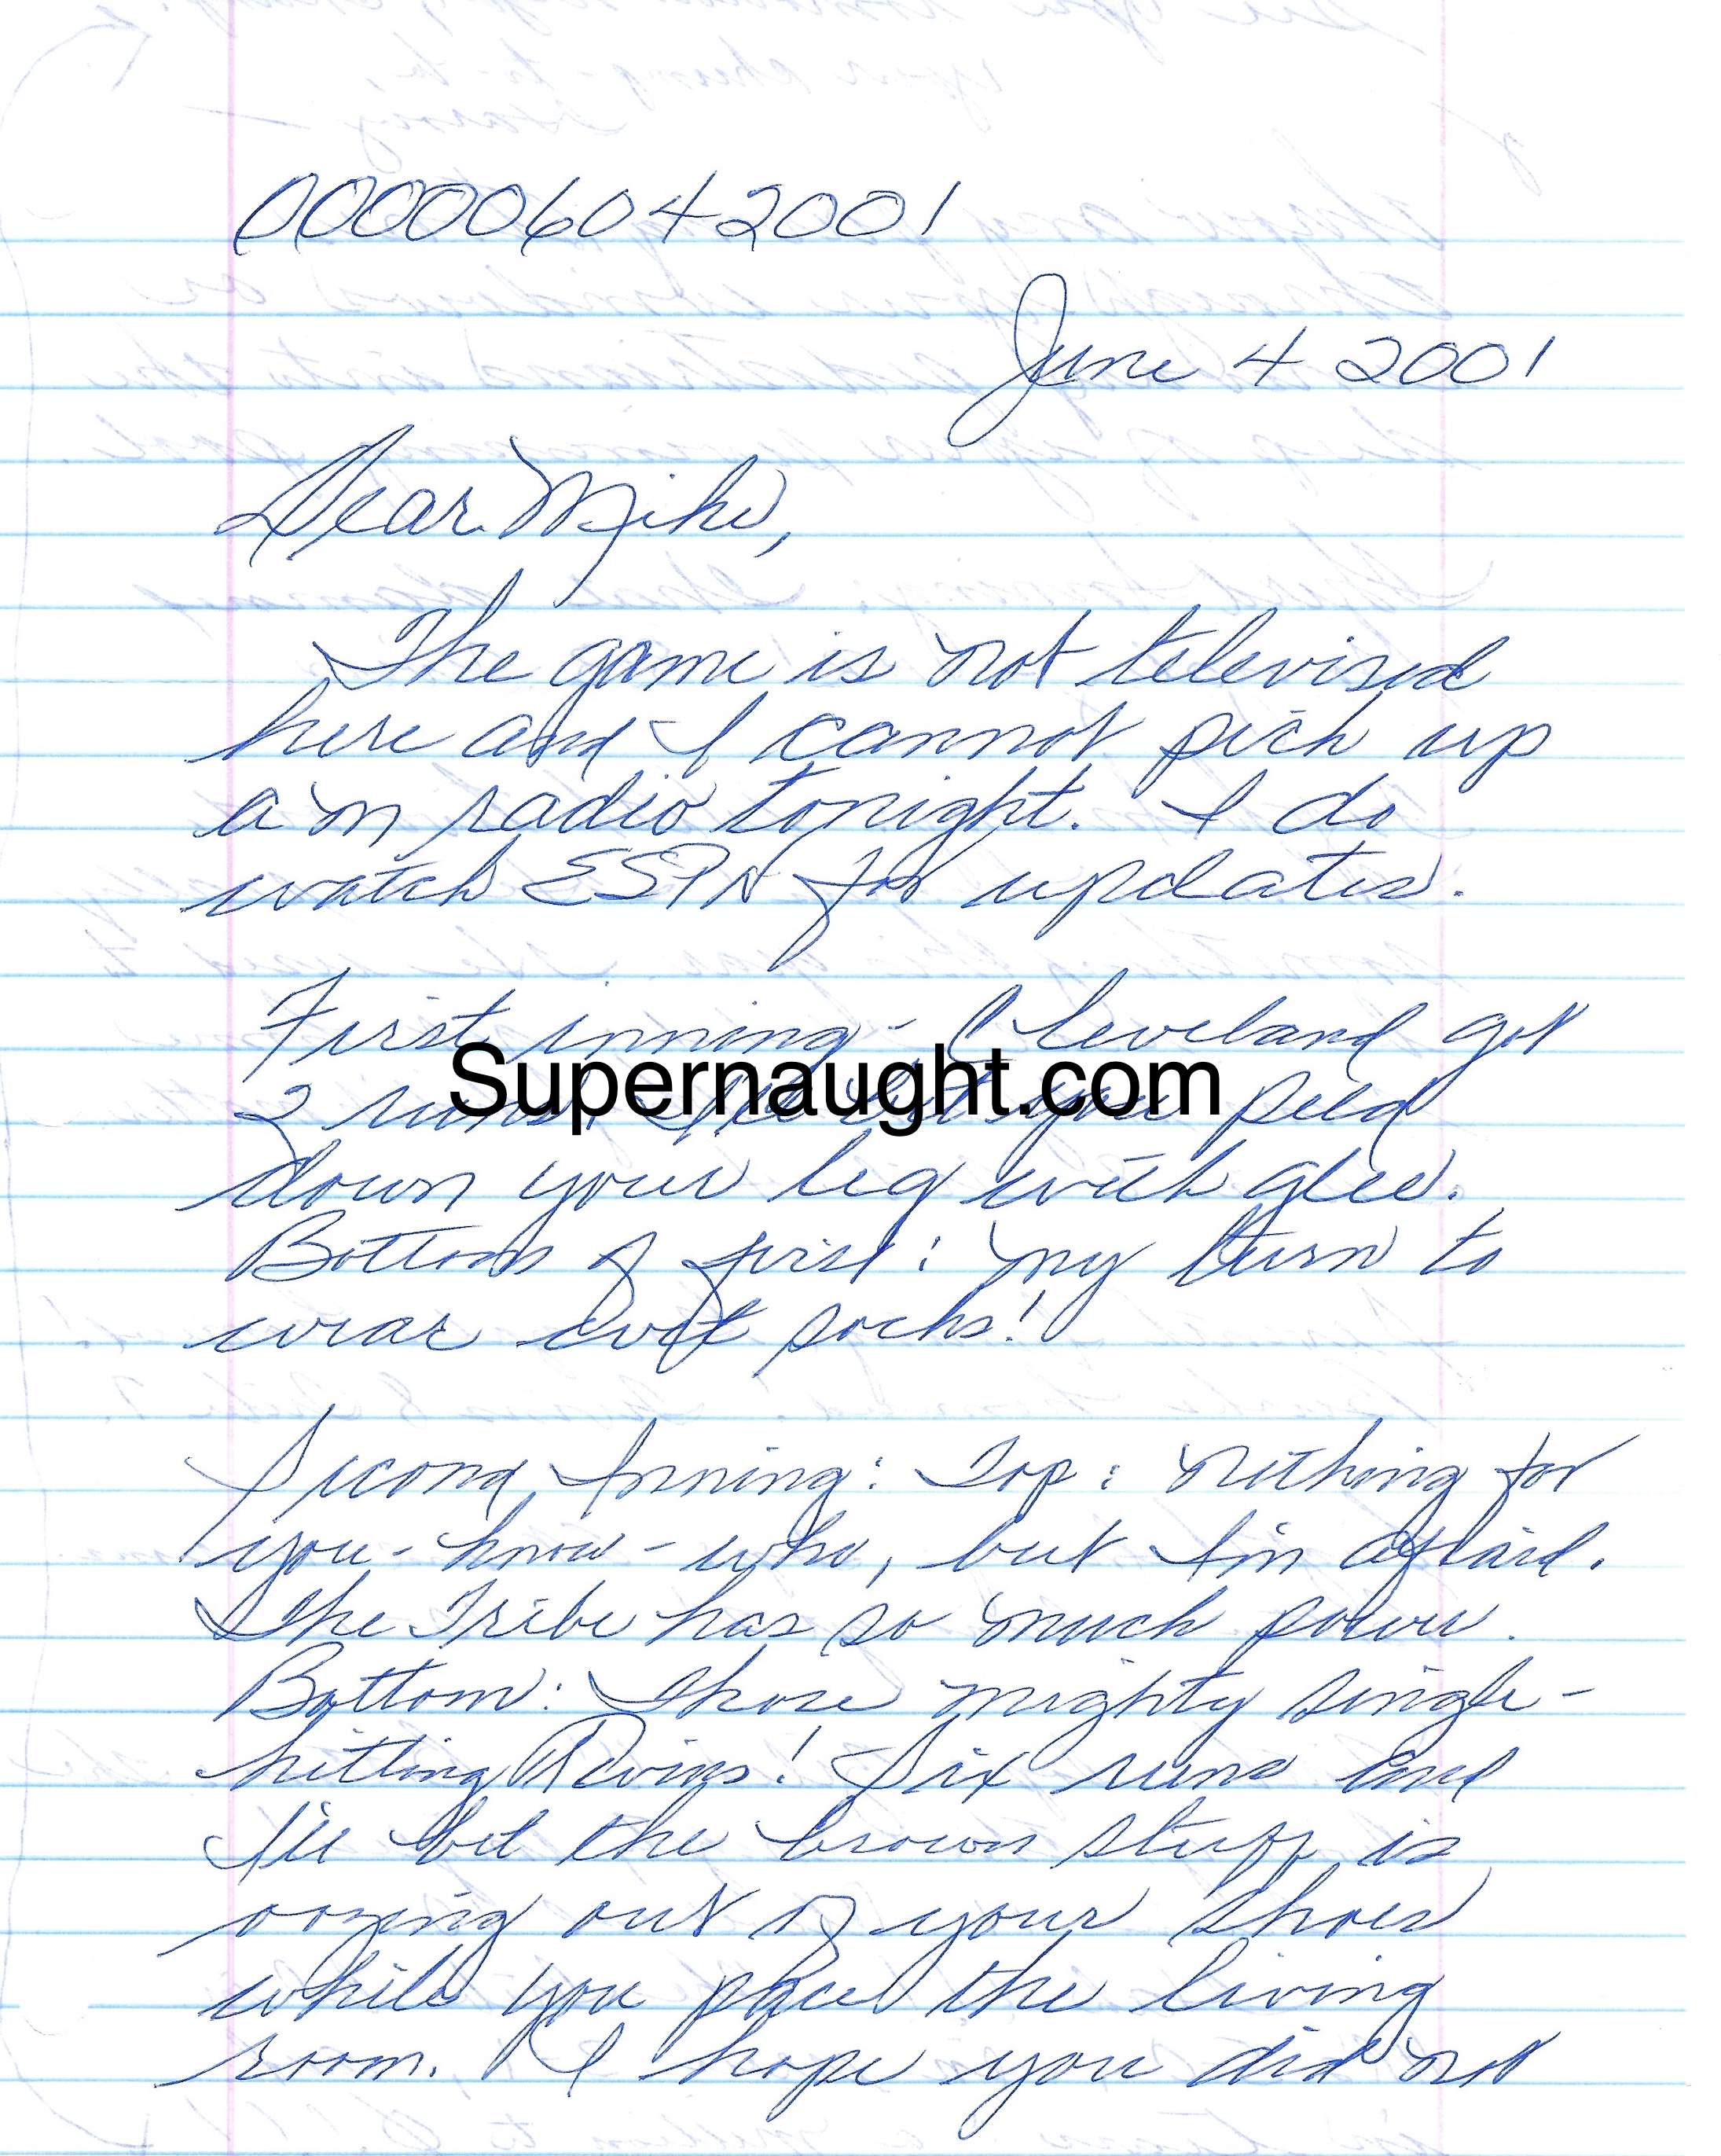 000006042001
June 4 2001
Dear Mike,
The game is not televised
here and I cannot pick up
a m radio tonight. I do
watch ESPN for updates.
First inning - Cleveland got
Supernaught.com
2 runs. I'll bet you peed
down your leg with glee.
Bottom of first: my turn to
wear wet socks!
Second Inning: Top: Nothing for
you-know-who, but I'm afraid.
The Tribe has so much power.
Bottom: Those mighty single-
hitting Twins! Six runs and
I'll bet the brown stuff is
oozing out of your shoes
while you pace the living
room. I hope you did not